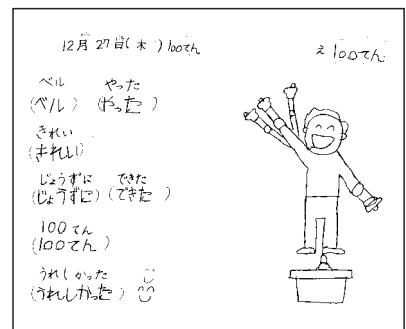 12月27日(木)100てん
え100てん
ベル やった
(ベル) (やった)
きれい
(きれい)
じょうずに できた
(じょうずに)(できた)
100てん
(100てん)
うれしかった
(うれしかった)